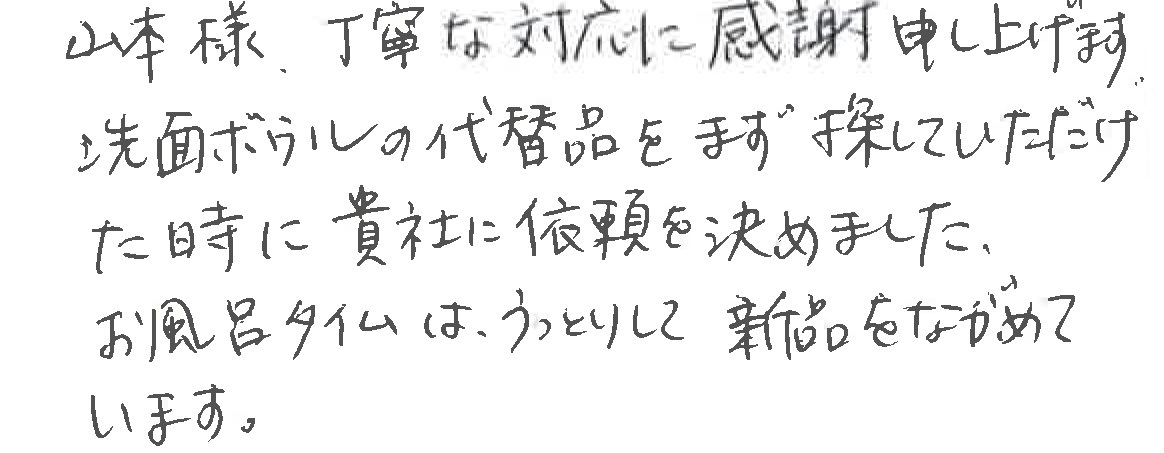 山本様、丁寧な対応に感謝申し上げます
洗面ボウルの代替品をまず探していただけ
た時に貴社に依頼を決めました、
お風呂タイムは、うっとりして新品をながめて
います。